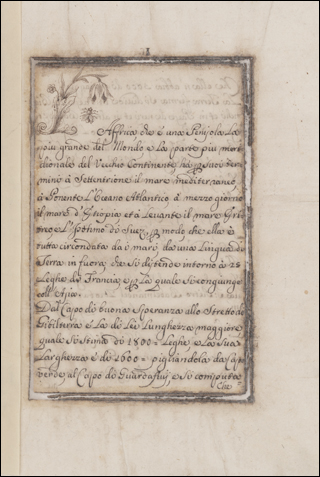 1
Africa, che è una Penisola La
più grande del Mondo e La parte più meri
dionale del Vecchio Continente, hà p suoi ter
mini à Settentrione il mare mediterraneo,
à Ponente L'Oceano Atlantico à mezzo giorno
il mare d'Etiopia et à Levante il mare
L'Isthmo di Suez, p modo che ella è
tutta circondata da i mari da una Lingua di
Terra in fuora, che si distende intorno à 25
Leghe di Francia, p La quale si congiunge
coll'Asia.
Dal Capo di buona Speranza allo Stretto di
Gibilterra e La di Lei Lunghezza maggiore
quale si stima di 1800= Leghe, e La sua
Larghezza è di 1600= pigliandola da Capo
verde, al Capo di Guardafuy e si computa
Che